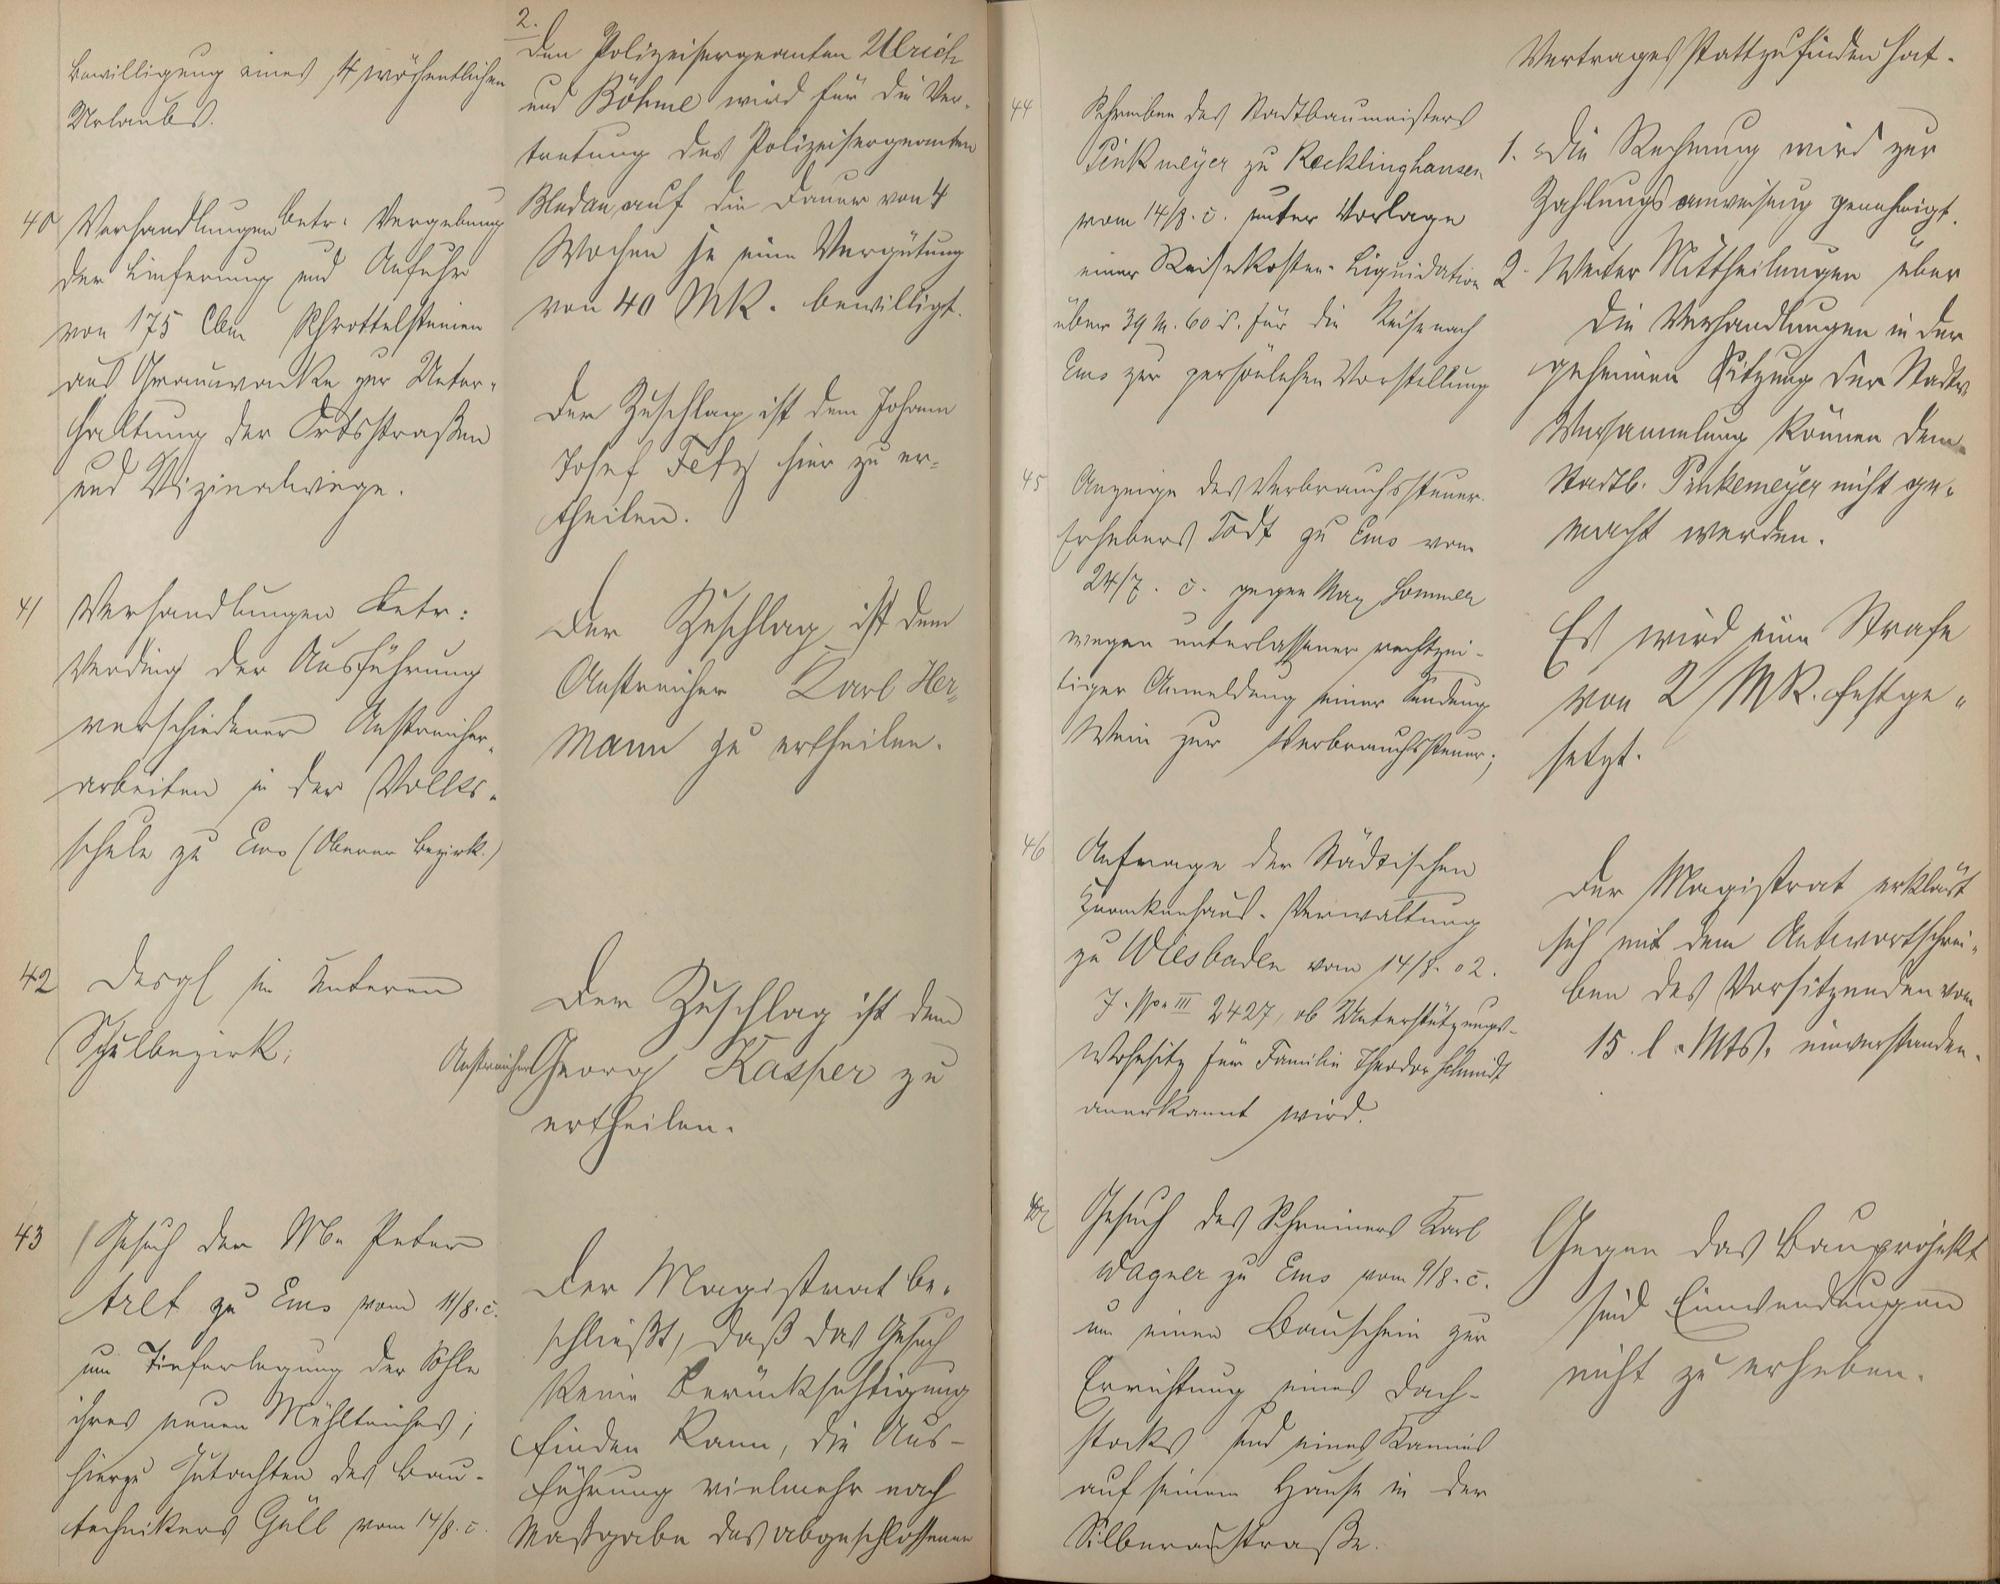 Bewilligung eines 4 wöchentlichen
Urlaubs.
40 Verhandlungen betr. Vergebung
der Lieferung und Anfuhr
von 175 Cbm Schrottelsteinen
aus Grauwacke zur Unter-
haltung der Ortsstraßen
und Vizinalwege.
41 Verhandlungen betr:
Verding der Ausführung
verschiedener Anstreicher-
arbeiten in der Volks-
schule zu Ems (Oberer Bezirk.)
42 Desgl im unteren
Schulbezirk;
43 Gesuch der Ww Peter
Arlt zu Ems vom 11/8. c.
um Tieferlegung der Sohle
ihres neuen Mühlteiches;
hierzu Gutachten des Bau-
technikers Güll vom 14/8. c.
2.
Den Polizeisergeanten Ulrich
und Böhme wird für die Ver-
tretung des Polizeisergeanten
Bledau auf die Dauer von 4
Wochen je eine Vergütung
von 40 MK. bewilligt.
Der Zuschlag ist dem Johann
Josef Fetz hier zu er-
theilen.
Der Zuschlag ist dem
Anstreicher Karl Her-
mann zu ertheilen.
Der Zuschlag ist dem
Anstreicher Georg Kasper zu
ertheilen.
Der Magistrat be-
schließt, daß das Gesuch
keine Berücksichtigung
finden kann, die Aus-
führung vielmehr nach
Maßgabe des abgeschlossenen
44 Schreiben des Stadtbaumeisters
Pinkmeyer zu Recklinghausen
vom 14/8. c. unter Vorlage
einer Reisekosten-Liquidation
über 39 M. 60 d. für die Reise nach
Ems zur persönlichen Vorstellung
45 Anzeige des Verbrauchssteuer-
Erhebers Todt zu Ems vom
24/7. c. gegen Max Sommer
wegen unterlassener rechtzei-
tiger Anmeldung seiner Sendung
Wein zur Verbrauchssteuer;
46 Anfrage der Städtischen
Krankenhaus-Verwaltung
zu Wiesbaden vom 14/8. 02.
J. No III 2427, ob Unterstützungs-
wohnsitz für Familie Theodor Schmidt
anerkannt wird.
47 Gesuch des Schreiners Karl
Wagner zu Ems vom 9/8. c.
um einen Bauschein zur
Errichtung eines Dach-
stocks und eines Kamins
auf seinem Hause in der
Silberaustraße.
Vertrages stattzufinden hat.
1. Die Rechnung wird zur
Zahlungsanweisung genehmigt.
2. Weiter Mittheilungen über
die Verhandlungen in der
geheimen Sitzung der Stadtv.
Versammlung können dem
Stadtb. Pinkemeyer nicht ge-
macht werden.
Es wird eine Strafe
von 2 MK. festge-
setzt.
Der Magistrat erklärt
sich mit dem Antwortschrei-
ben des Vorsitzenden vom
15. l. Mts. einverstanden.
Gegen das Bauprojekt
sind Einwendungen
nicht zu erheben.